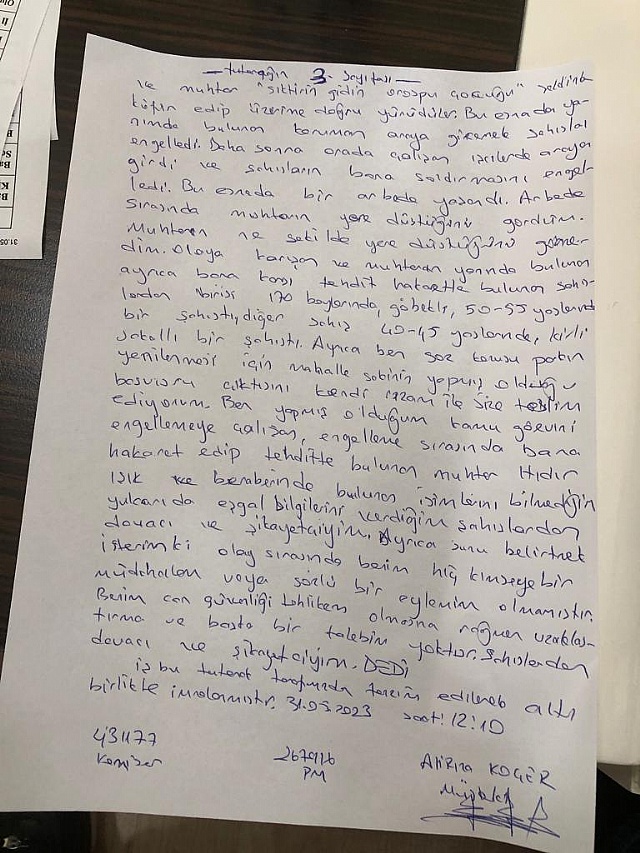 — tutanağın 3. sayfası —
ve muhtar "siktirin gidin orospu çocuğu" şeklinde
küfür edip üzerime doğru yürüdüler. Bu esnada ya-
nımda bulunan korumam araya girerek şahısları
engelledi. Daha sonra orada çalışan işçilerde araya
girdi ve şahısların bana saldırmasını engel-
ledi. Bu esnada bir arbede yaşandı. Arbede
sırasında muhtarın yere düştüğünü gördüm.
Muhtarın ne şekilde yere düştüğünü görme-
dim. Olaya karışan ve muhtarın yanında bulunan
ayrıca bana karşı tehdit hakarette bulunan şahıs-
lardan birisi 170 boylarında, göbekli, 50-55 yaşlarında
bir şahıstı, diğer şahıs 40-45 yaşlarında, kirli
sakallı bir şahıstı. Ayrıca ben söz konusu parkın
yenilenmesi için mahalle yapmış olduğu
başvuru çıktısını kendi rızam ile size teslim
ediyorum. Ben yapmış olduğum kamu görevini
engellemeye çalışan, engelleme sırasında bana
hakaret edip tehditte bulunan muhtar Hıdır
Işık ve beraberinde bulunan isimlerini bilmediğim
yukarıda eşgal bilgilerini verdiğim şahıslardan
davacı ve şikayetçiyim. Ayrıca şunu belirtmek
isterimki olay sırasında benim hiç kimseye bir
müdahalem veya sözlü bir eylemim olmamıştır.
Benim can güvenliği tehlikem olmasına rağmen uzaklaş-
tırma ve başka bir talebim yoktur. Şahıslardan
davacı ve şikayetçiyim. DEDİ
iş bu tutanak tarafımızda tanzim edilerek altı
birlikte imzalanmıştır. 31.05.2023 saat: 12:10
431177
Komiser
267916
PM
Alirıza KOÇER
Müşteki
31.05